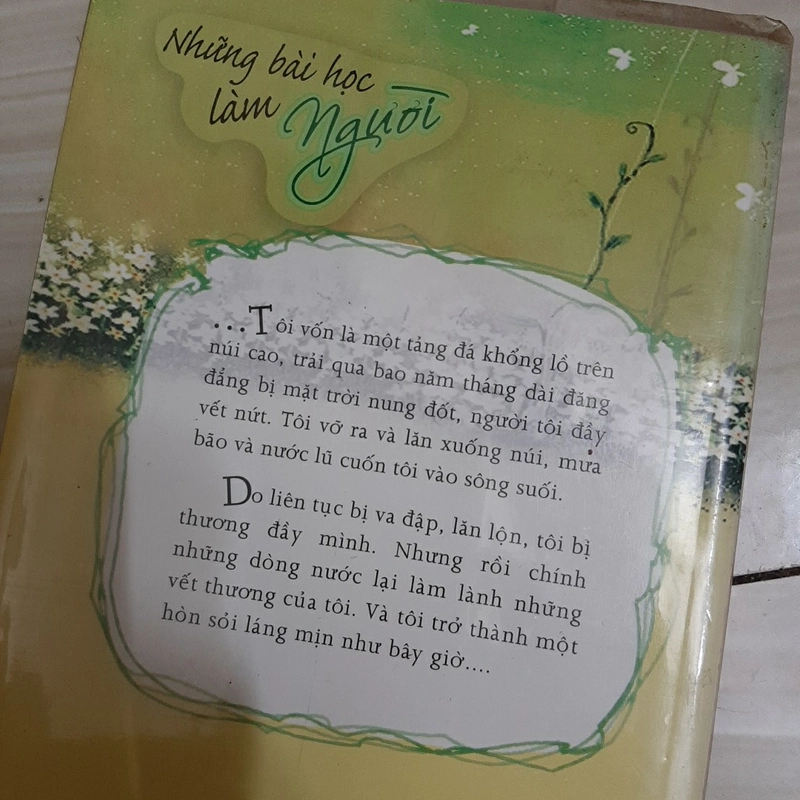 Những bài học
làm Người
...Tôi vốn là một tảng đá khổng lồ trên
núi cao, trải qua bao năm tháng dài đăng
đẳng bị mặt trời nung đốt, người tôi đầy
vết nứt. Tôi vỡ ra và lăn xuống núi, mưa
bão và nước lũ cuốn tôi vào sông suối.
Do liên tục bị va đập, lăn lộn, tôi bị
thương đầy mình. Nhưng rồi chính
những dòng nước lại làm lành những
vết thương của tôi. Và tôi trở thành một
hòn sỏi láng mịn như bây giờ....